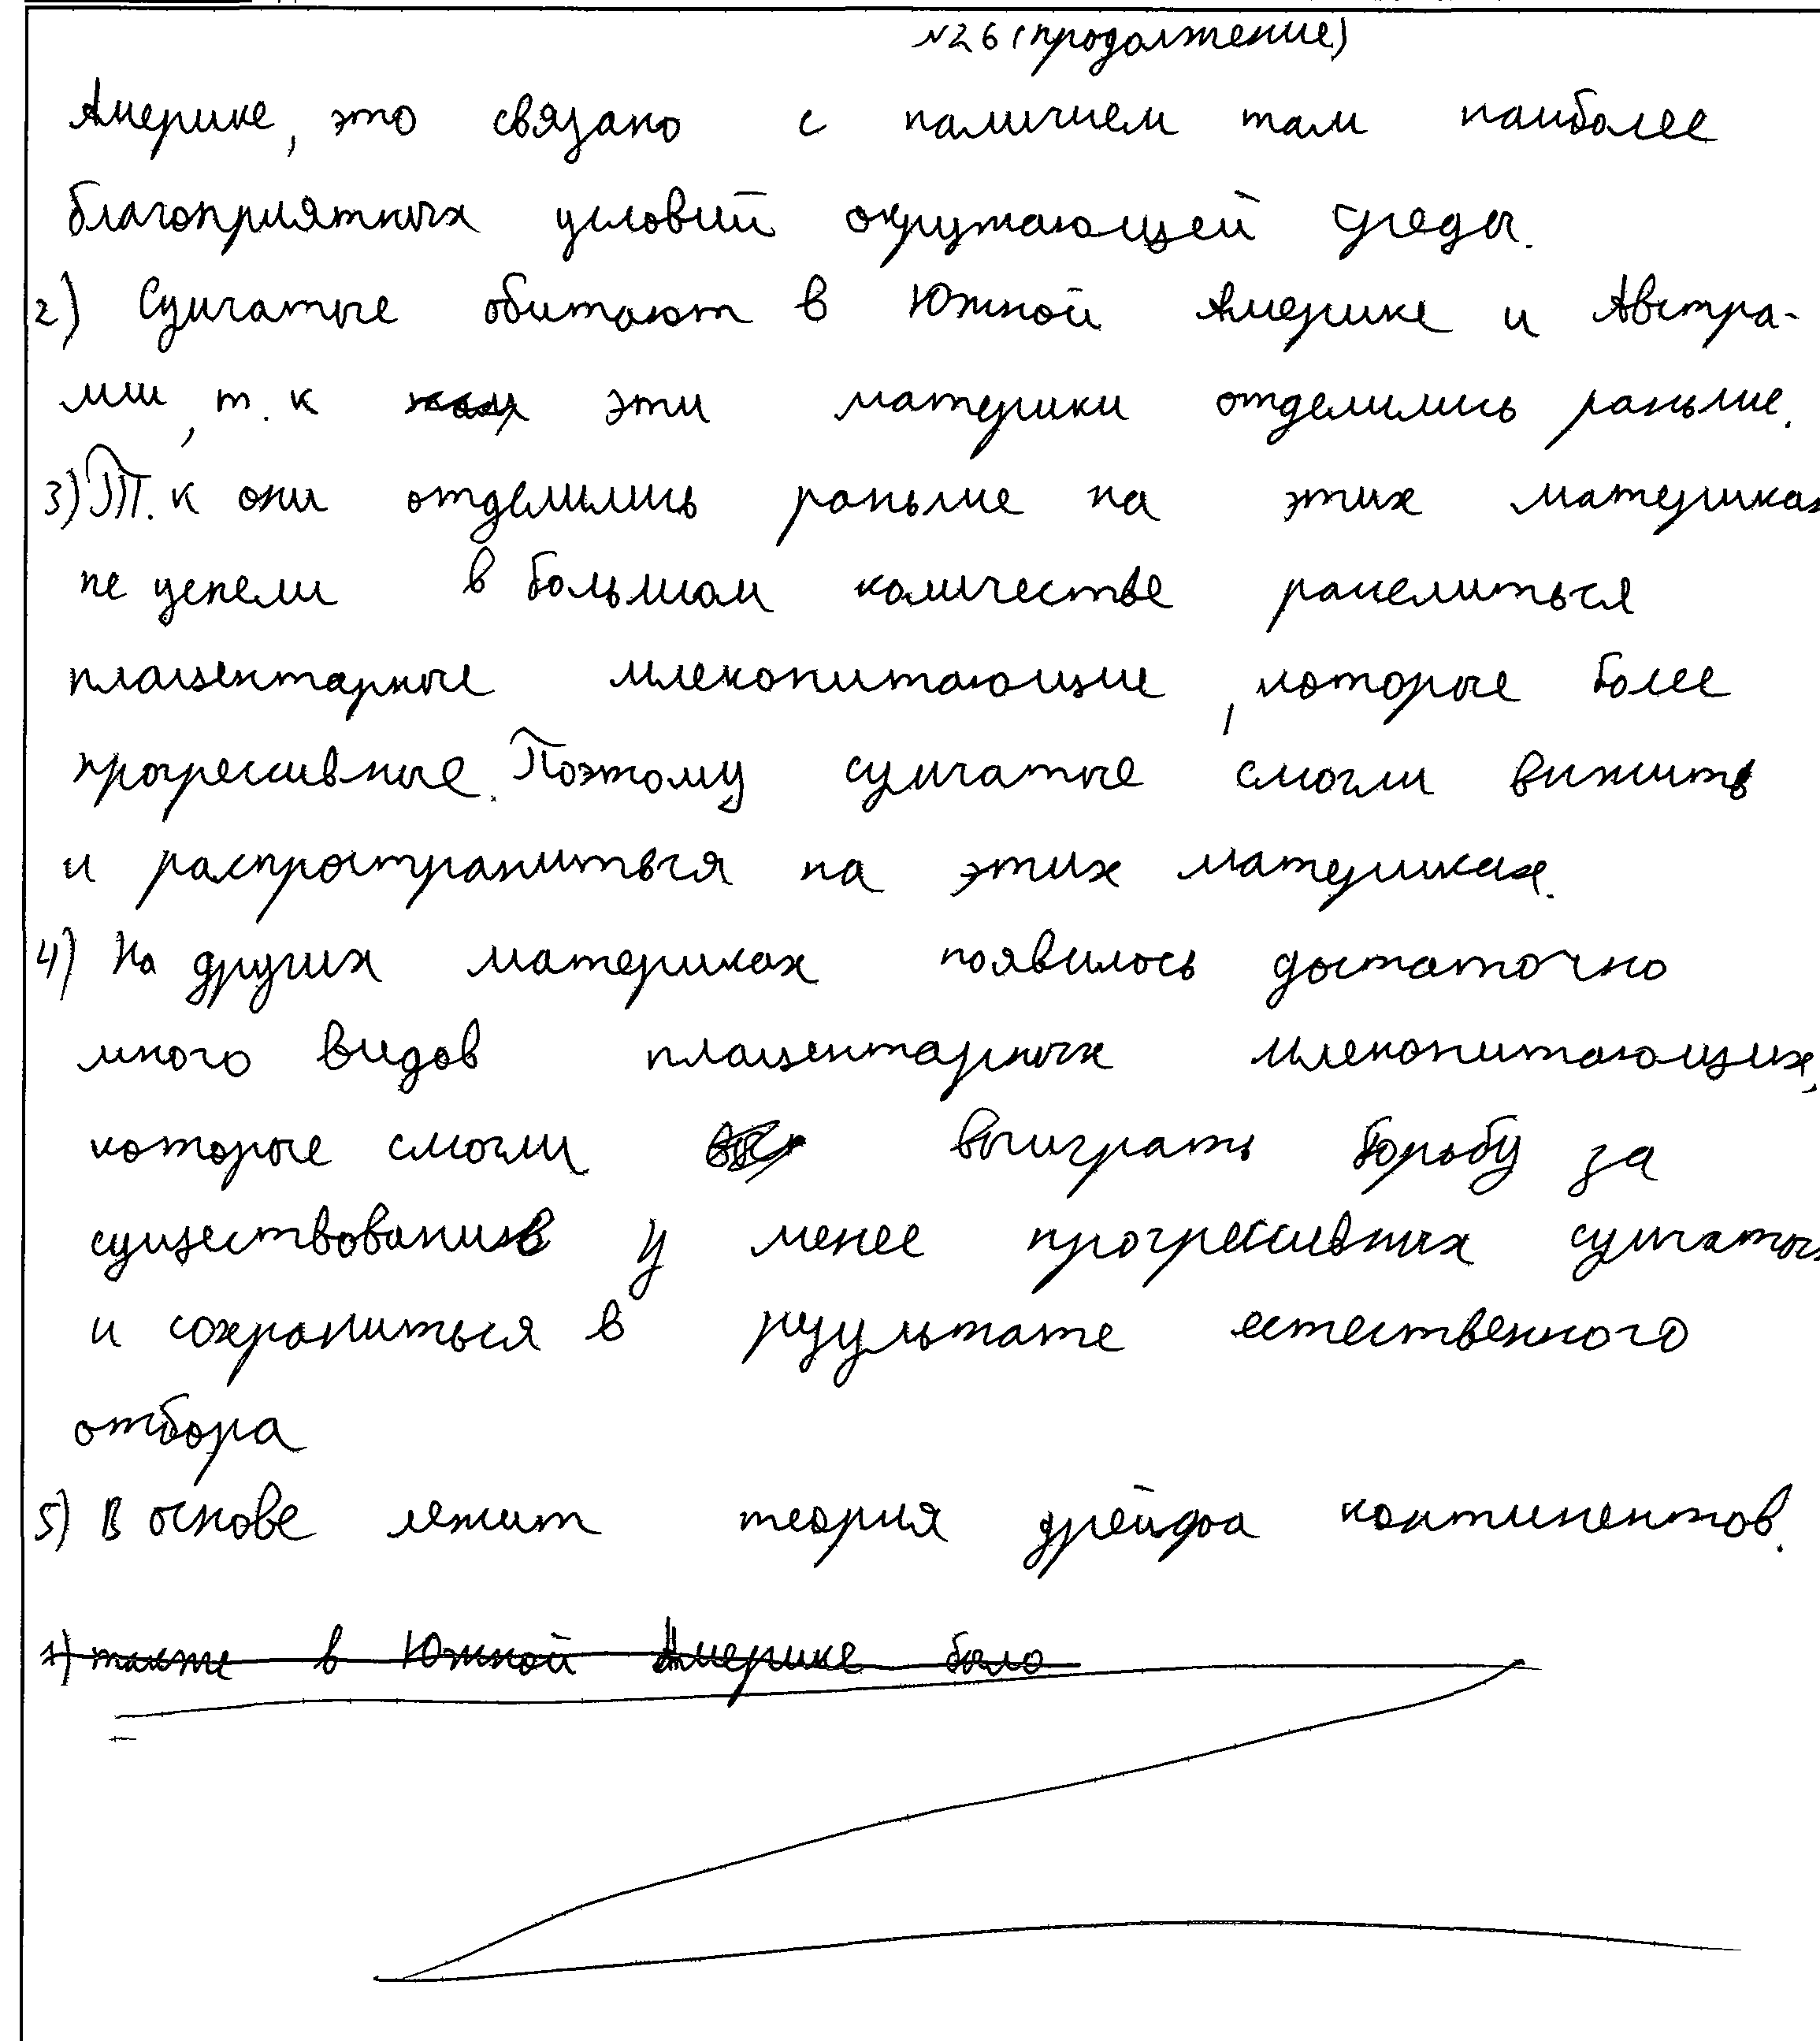 №26 (продолжение)
Америке, это связано с наличием там наиболее
благоприятных условий окружающей среды.
2) Сумчатые обитают в Южной Америке и Австра-
лии, т.к эти материки отделились раньше.
3) Т.к они отделились раньше на этих материках
не успели в большом количестве расселиться
плацентарные млекопитающие, которые более
прогрессивные. Поэтому сумчатые смогли вижить
и распространиться на этих материках.
4) На других материках появилось достаточно
много видов плацентарных млекопитающих,
которые смогли выиграть борьбу за
существование у менее прогрессивных сумчатых
и сохраниться в результате естественного
отбора
5) В основе лежит теория дрейфа континентов.
также в Южной Америке было